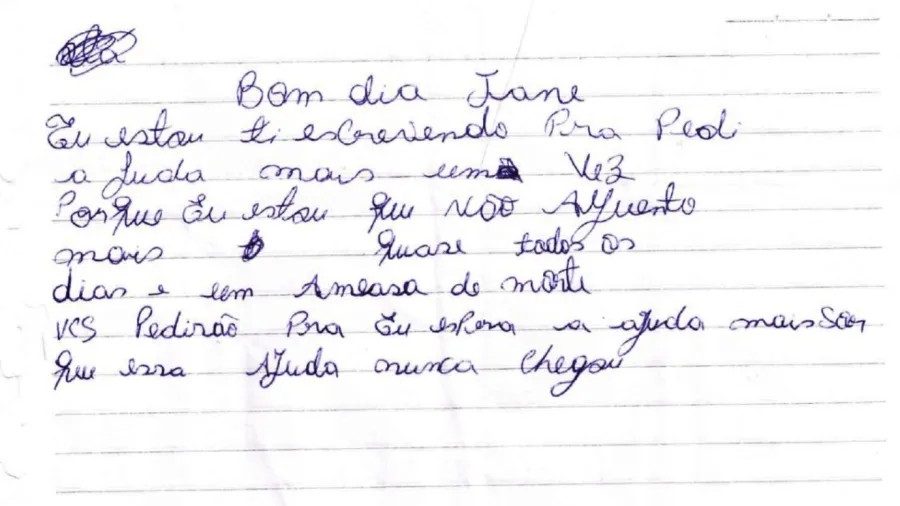 Bom dia Jane
Eu estou ti escrevendo Pra Pedi
a Juda mais uma Vez
Porque Eu estou que NÃO AJuento
mais quase todos os
dias e um Ameasa de morte
VCS Pedirão Pra Eu espera a ajuda mais Son
que essa AJuda nunca Chegou